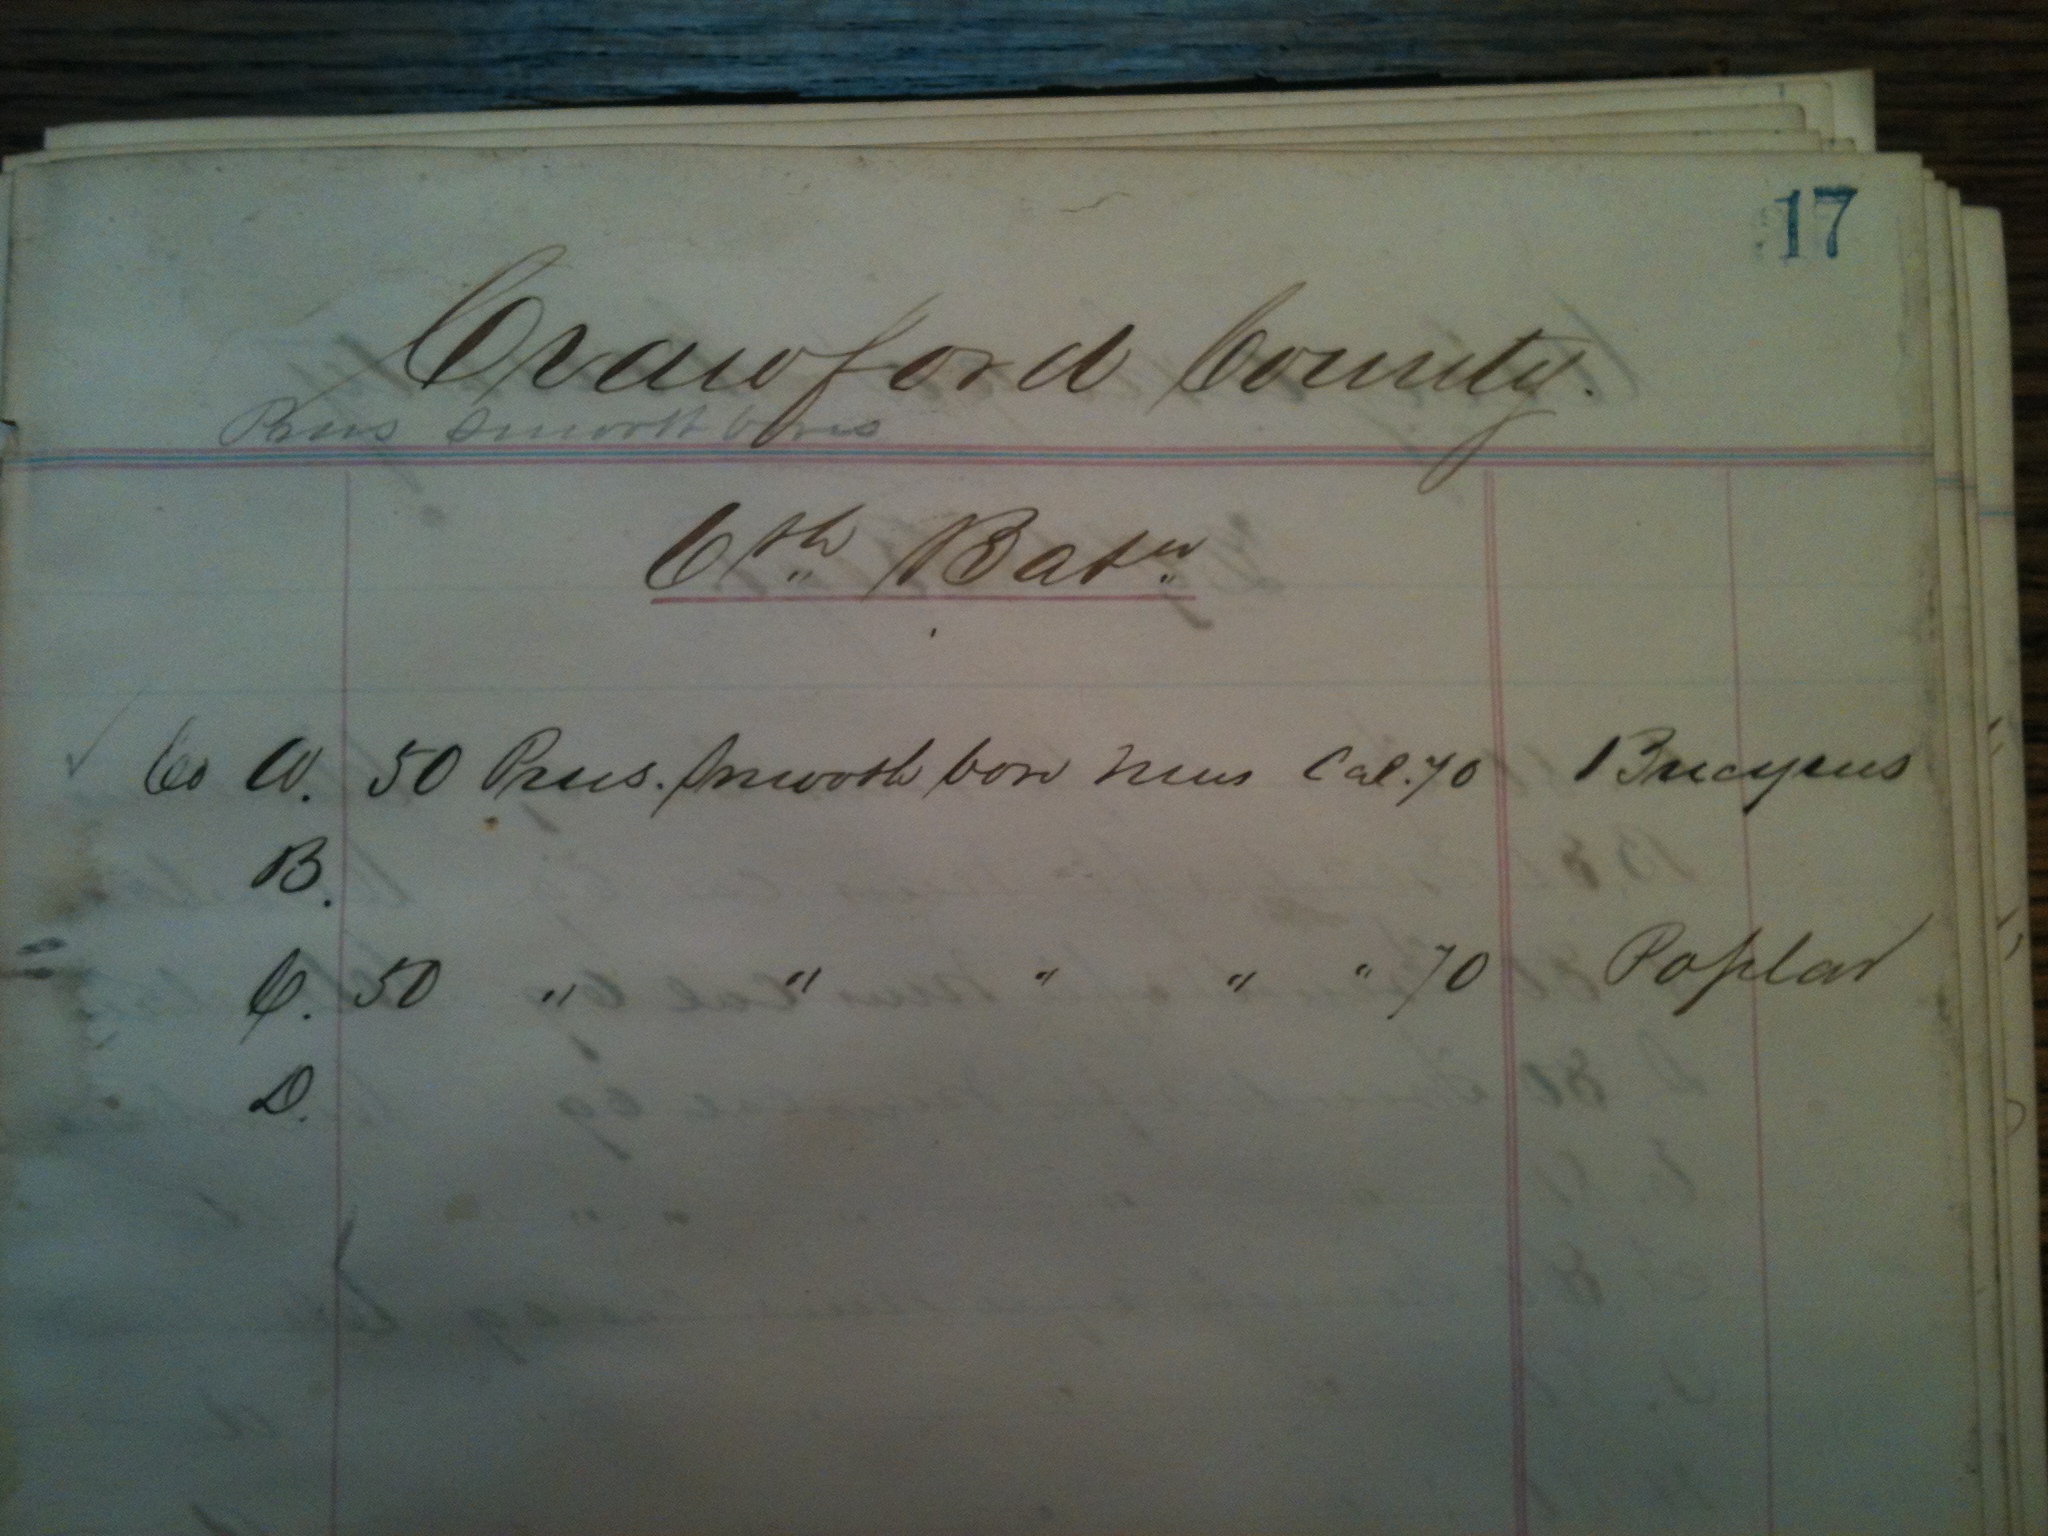 17
Crawford County.
Prus smooth bores
6th Batn
✓ Co A. 50 Prus. Smooth bore Mus Cal. 70 Bucyrus
B.
C. 50 " " " " " 70 Poplar
D.